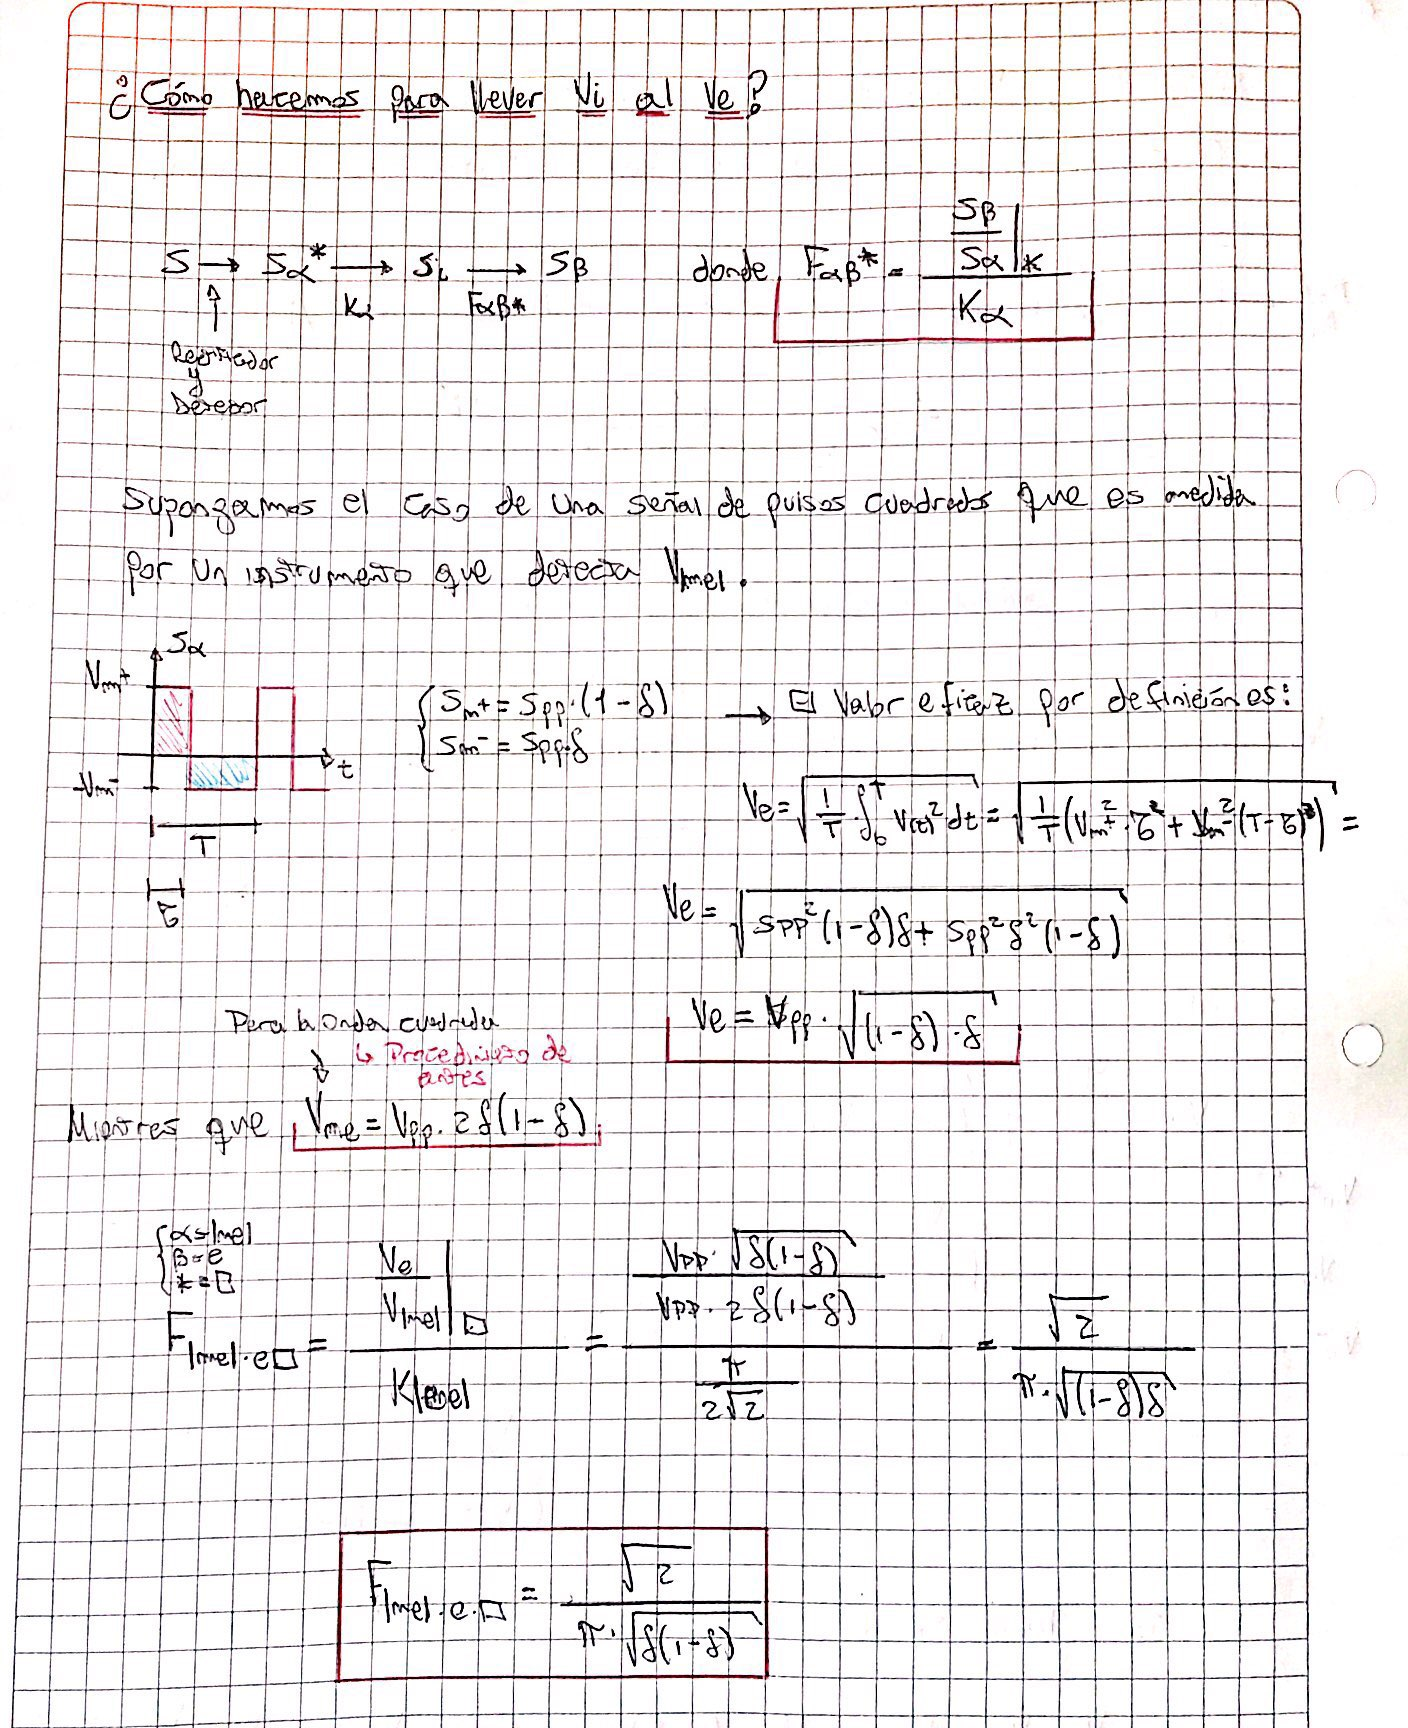 ¿Cómo hacemos para llever Vi al Ve?
S → Sα* → Si → Sβ donde Fαβ* = Sβ/Sα|* / Kα
Kα Fαβ*
Rectificador
y
Detector
Supongamos el caso de una señal de pulsos cuadrados que es medida
por un instrumento que detecta V|me|.
Sα
Vm+
-Vm-
t
T
τ
{ Sm+ = Spp·(1-δ)
Sm- = Spp·δ
→ El Valor eficaz por definición es:
Ve = √(1/T · ∫₀ᵀ V(t)² dt) = √(1/T (Vm+² · τ² + Vm-² (T-τ)²)) =
Ve = √(Spp²(1-δ)δ + Spp²δ²(1-δ))
Ve = Vpp · √((1-δ)·δ)
Para la onda cuadrada
↳ Procedimiento de
antes
Mientras que Vme = Vpp. 2δ(1-δ)
{ α=|me|
β=e
* = □
F|me|·e□ = Ve/V|me||□ / K|me| = Vpp·√(δ(1-δ)) / Vpp·2δ(1-δ) / π/2√2 = √2 / π·√((1-δ)δ)
F|me|·e·□ = √2 / π·√(δ(1-δ))